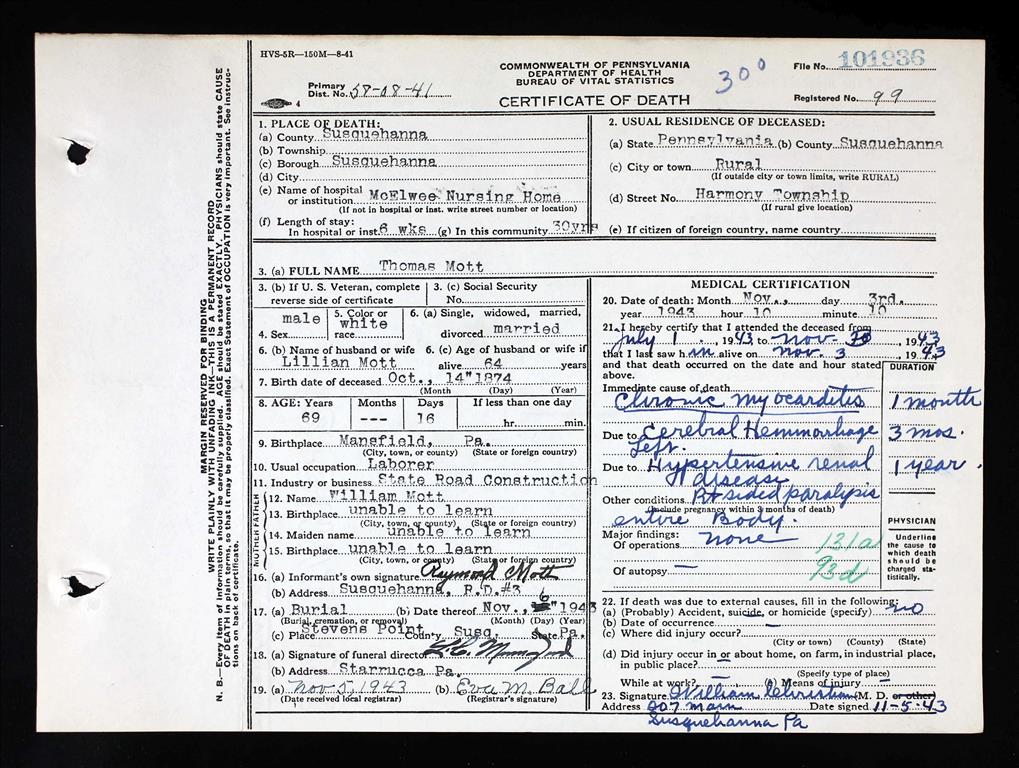 HVS-5R—150M—8-41
COMMONWEALTH OF PENNSYLVANIA
DEPARTMENT OF HEALTH
BUREAU OF VITAL STATISTICS
300
File No. 101936
Primary
Dist. No. 58-08-41
4
CERTIFICATE OF DEATH
Registered No. 99
MARGIN RESERVED FOR BINDING
WRITE PLAINLY WITH UNFADING INK—THIS IS A PERMANENT RECORD
N. B.—Every item of information should be carefully supplied. AGE should be stated EXACTLY. PHYSICIANS should state CAUSE
OF DEATH in plain terms, so that it may be properly classified. Exact Statement of OCCUPATION is very important. See instruc-
tions on back of certificate.
1. PLACE OF DEATH:
(a) County Susquehanna
(b) Township
(c) Borough Susquehanna
(d) City
(e) Name of hospital
or institution McElwee Nursing Home
(If not in hospital or inst. write street number or location)
(f) Length of stay:
In hospital or inst. 6 wks (g) In this community 30yrs
2. USUAL RESIDENCE OF DECEASED:
(a) State Pennsylvania (b) County Susquehanna
(c) City or town Rural
(If outside city or town limits, write RURAL)
(d) Street No. Harmony Township
(If rural give location)
(e) If citizen of foreign country, name country
3. (a) FULL NAME Thomas Mott
3. (b) If U. S. Veteran, complete
reverse side of certificate
3. (c) Social Security
No.
4. Sex male
5. Color or
race white
6. (a) Single, widowed, married,
divorced married
6. (b) Name of husband or wife
Lillian Mott
6. (c) Age of husband or wife if
alive 64 years
7. Birth date of deceased Oct., 14" 1874
(Month (Day) (Year)
8. AGE: Years
69
Months
---
Days
16
If less than one day
hr. min.
9. Birthplace Mansfield, Pa.
(City, town, or county) (State or foreign country)
10. Usual occupation Laborer
11. Industry or business State Road Construction
MOTHER FATHER
12. Name William Mott
13. Birthplace unable to learn
(City, town, or county) (State or foreign country)
14. Maiden name unable to learn
15. Birthplace unable to learn
(City, town, or county) (State or foreign country)
16. (a) Informant's own signature Raymond Mott
(b) Address Susquehanna, R.D.#3
17. (a) Burial (b) Date thereof Nov., 6" 1943
(Burial, cremation, or removal) (Month) (Day) (Year)
(c) Place Stevens Point County Susq. State Pa.
18. (a) Signature of funeral director
(b) Address Starrucca Pa.
19. (a) Nov 5, 1943 (b) Eva M. Ball
(Date received local registrar) (Registrar's signature)
MEDICAL CERTIFICATION
20. Date of death: Month Nov., day 3rd.
year 1943 hour 10 minute 10
21. I hereby certify that I attended the deceased from
July 1, 1943 to Nov. 3, 1943
that I last saw him alive on Nov. 3 1943
and that death occurred on the date and hour stated
above.
DURATION
Immediate cause of death
Chronic Myocarditis 1 month
Due to Cerebral Hemmorhage 3 mos.
Left.
Due to Hypertensive renal 1 year.
disease
Other conditions Rt sided paralysis
(Include pregnancy within 3 months of death)
entire Body.
Major findings:
Of operations none 131a
Of autopsy — 93d
PHYSICIAN
Underline
the cause to
which death
should be
charged sta-
tistically.
22. If death was due to external causes, fill in the following:
(a) (Probably) Accident, suicide, or homicide (specify) no
(b) Date of occurrence —
(c) Where did injury occur?
(City or town) (County) (State)
(d) Did injury occur in or about home, on farm, in industrial place,
in public place? —
(Specify type of place)
While at work? (e) Means of injury —
23. Signature William Christian (M. D. or other)
Address 207 Main Date signed 11-5-43
Susquehanna Pa